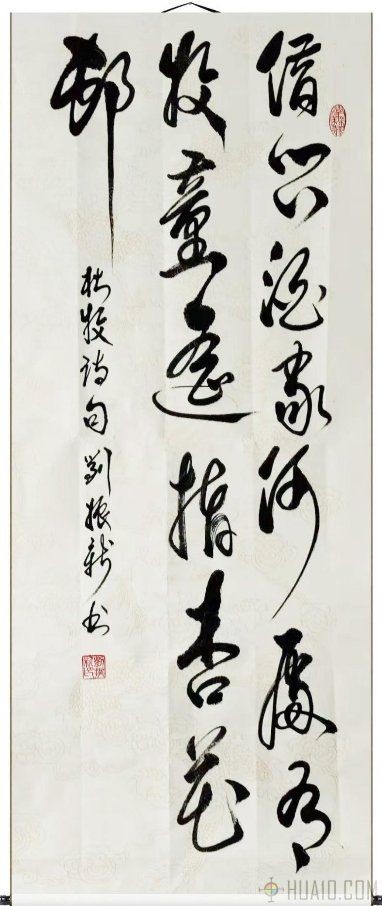 借问酒家何處有
牧童遥指杏花
邨
杜牧诗句刘振新书
HUA10.COM